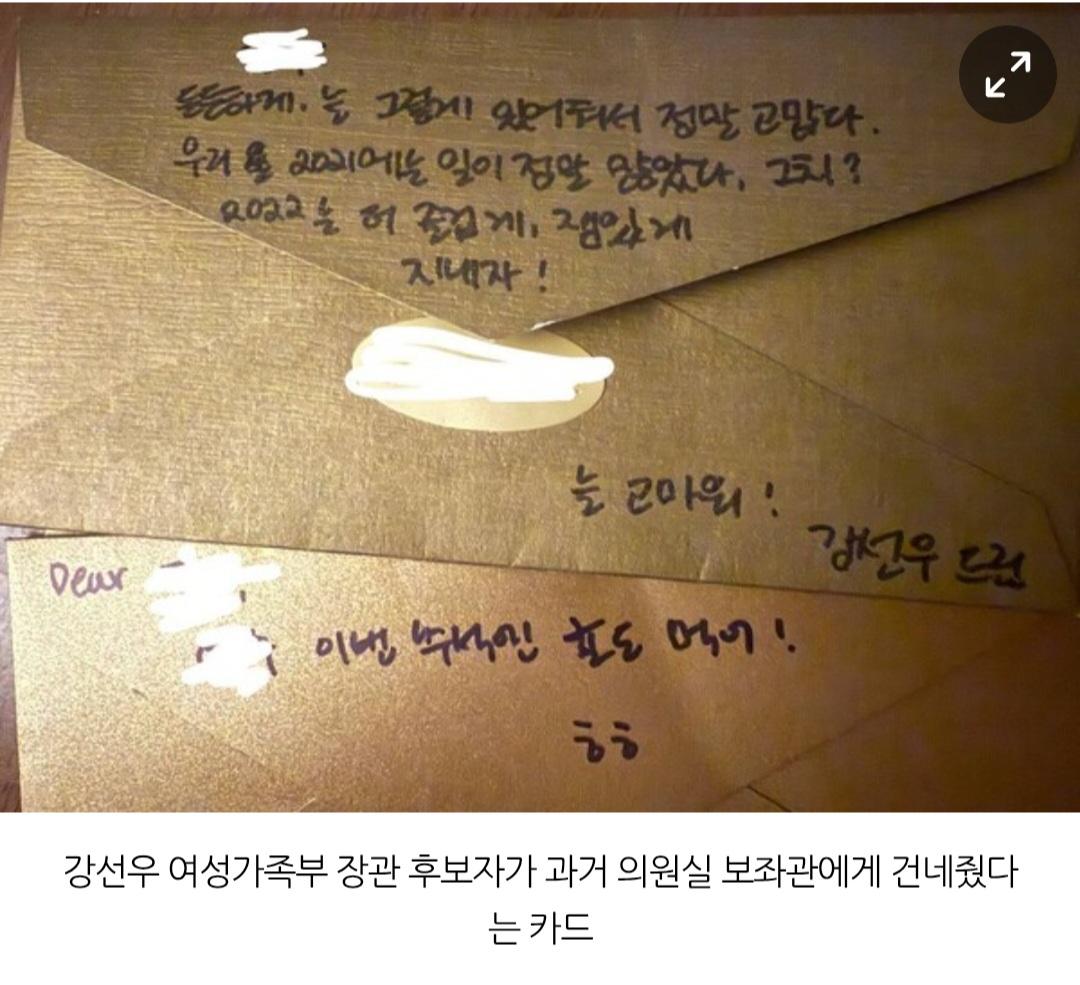 든든하게. 늘 그렇게 있어줘서 정말 고맙다.
우리 2021에는 일이 정말 많았다, 그치?
2022는 더 즐겁게, 잼있게
지내자!
늘 고마워!
강선우 드림
Dear
이번 추석엔 먹어!
ㅎㅎ
강선우 여성가족부 장관 후보자가 과거 의원실 보좌관에게 건네줬다
는 카드